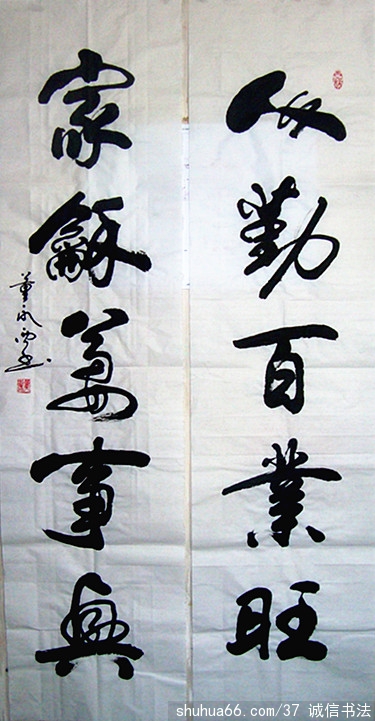 人勤百業旺
家龢萬事興
shuhua66.com/37 诚信书法